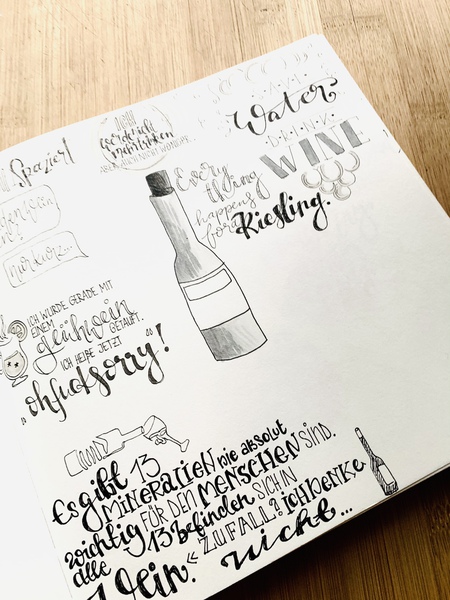 Spaziert
werde ich
SAVE
Water
DRINK
WINE
Every
thing
happens
for a
Riesling.
nur kurz...
ICH WURDE GERADE MIT
EINEM
glühwein
GETAUFT.
ICH HEIßE JETZT
„ohfucksorry!“
Es gibt 13
MINERALIEN die absolut
wichtig FÜR DEN MENSCHEN SIND.
alle 13 befinden SICH IN
Wein. „ZUFALL? ICH DENKE
nicht...